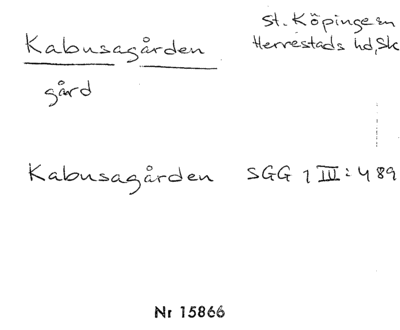 Kabusagården
St. Köpinge sn
Herrestads hd, Sk
gård
Kabusagården SGG 1 III: 489
Nr 15866